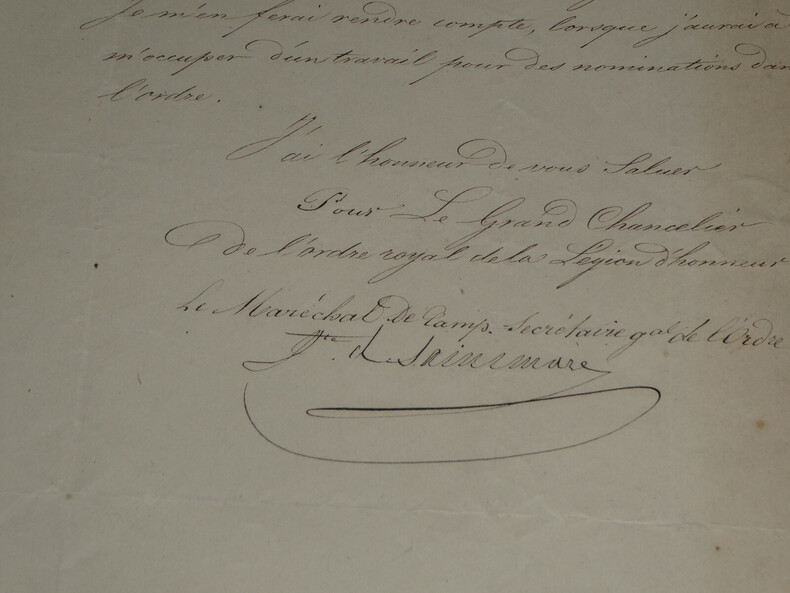 Je m'en ferai rendre compte, lorsque j'aurai à
m'occuper d'un travail pour des nominations dan
l'ordre.
J'ai l'honneur de vous Saluer
Pour Le Grand Chancelier
De l'ordre royal de la Légion d'honneur
Le Maréchal De Camp. Secrétaire gal de l'Ordre
Vte de Saint mare